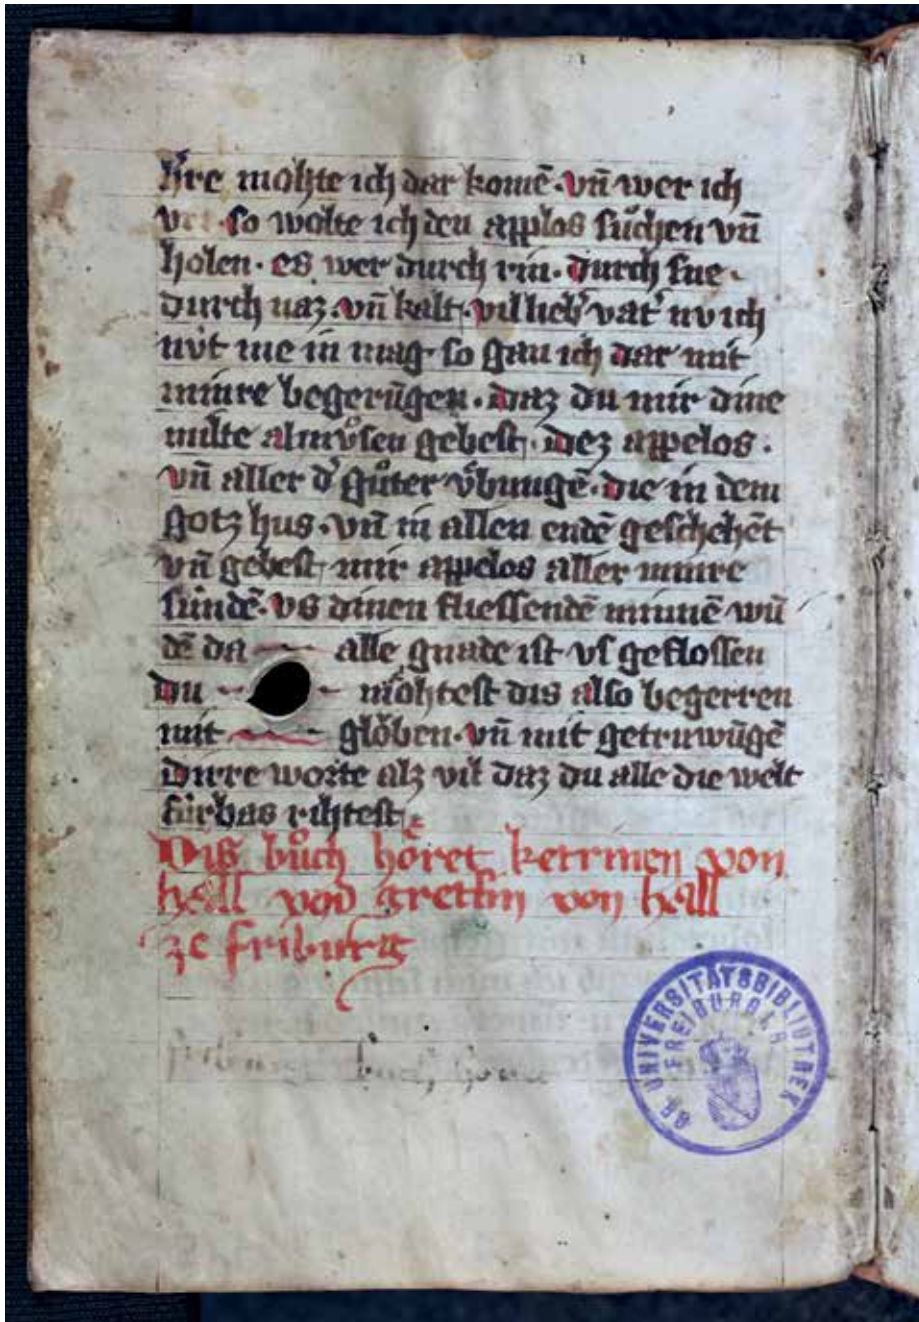 h're mohte ich dar komē · vn̄ wer ich
vri · so wolte ich den applos sůchen vn̄
holen · es wer durch rin · durch sne ·
durch naz · vn̄ kalt · vil lieb' vat' nv ich
nv̇t me in mag · so gan ich dar mit
minre begerūgen · daz du mir dine
milte almůsen gebest · dez appelos ·
vn̄ aller d' gůter v̊bungē · die in dem
gotz hus · vn̄ in allen endē geschehēt
vn̄ gebest mir appelos aller minre
sündē · vs dinen fliessendē minnē wū
dē da alle gnade ist vs geflossen
du möhtest dis also begerren
mit glöben · vn̄ mit getruwūgē
dirre worte alz vil daz du alle die welt
fürbas rihtest ·
Dis bůch höret ketrinen von
hall vnd gretlin von hall
ze friburg
buch
UNIVERSITÄTSBIBLIOTHEK
FREIBURG i. B.